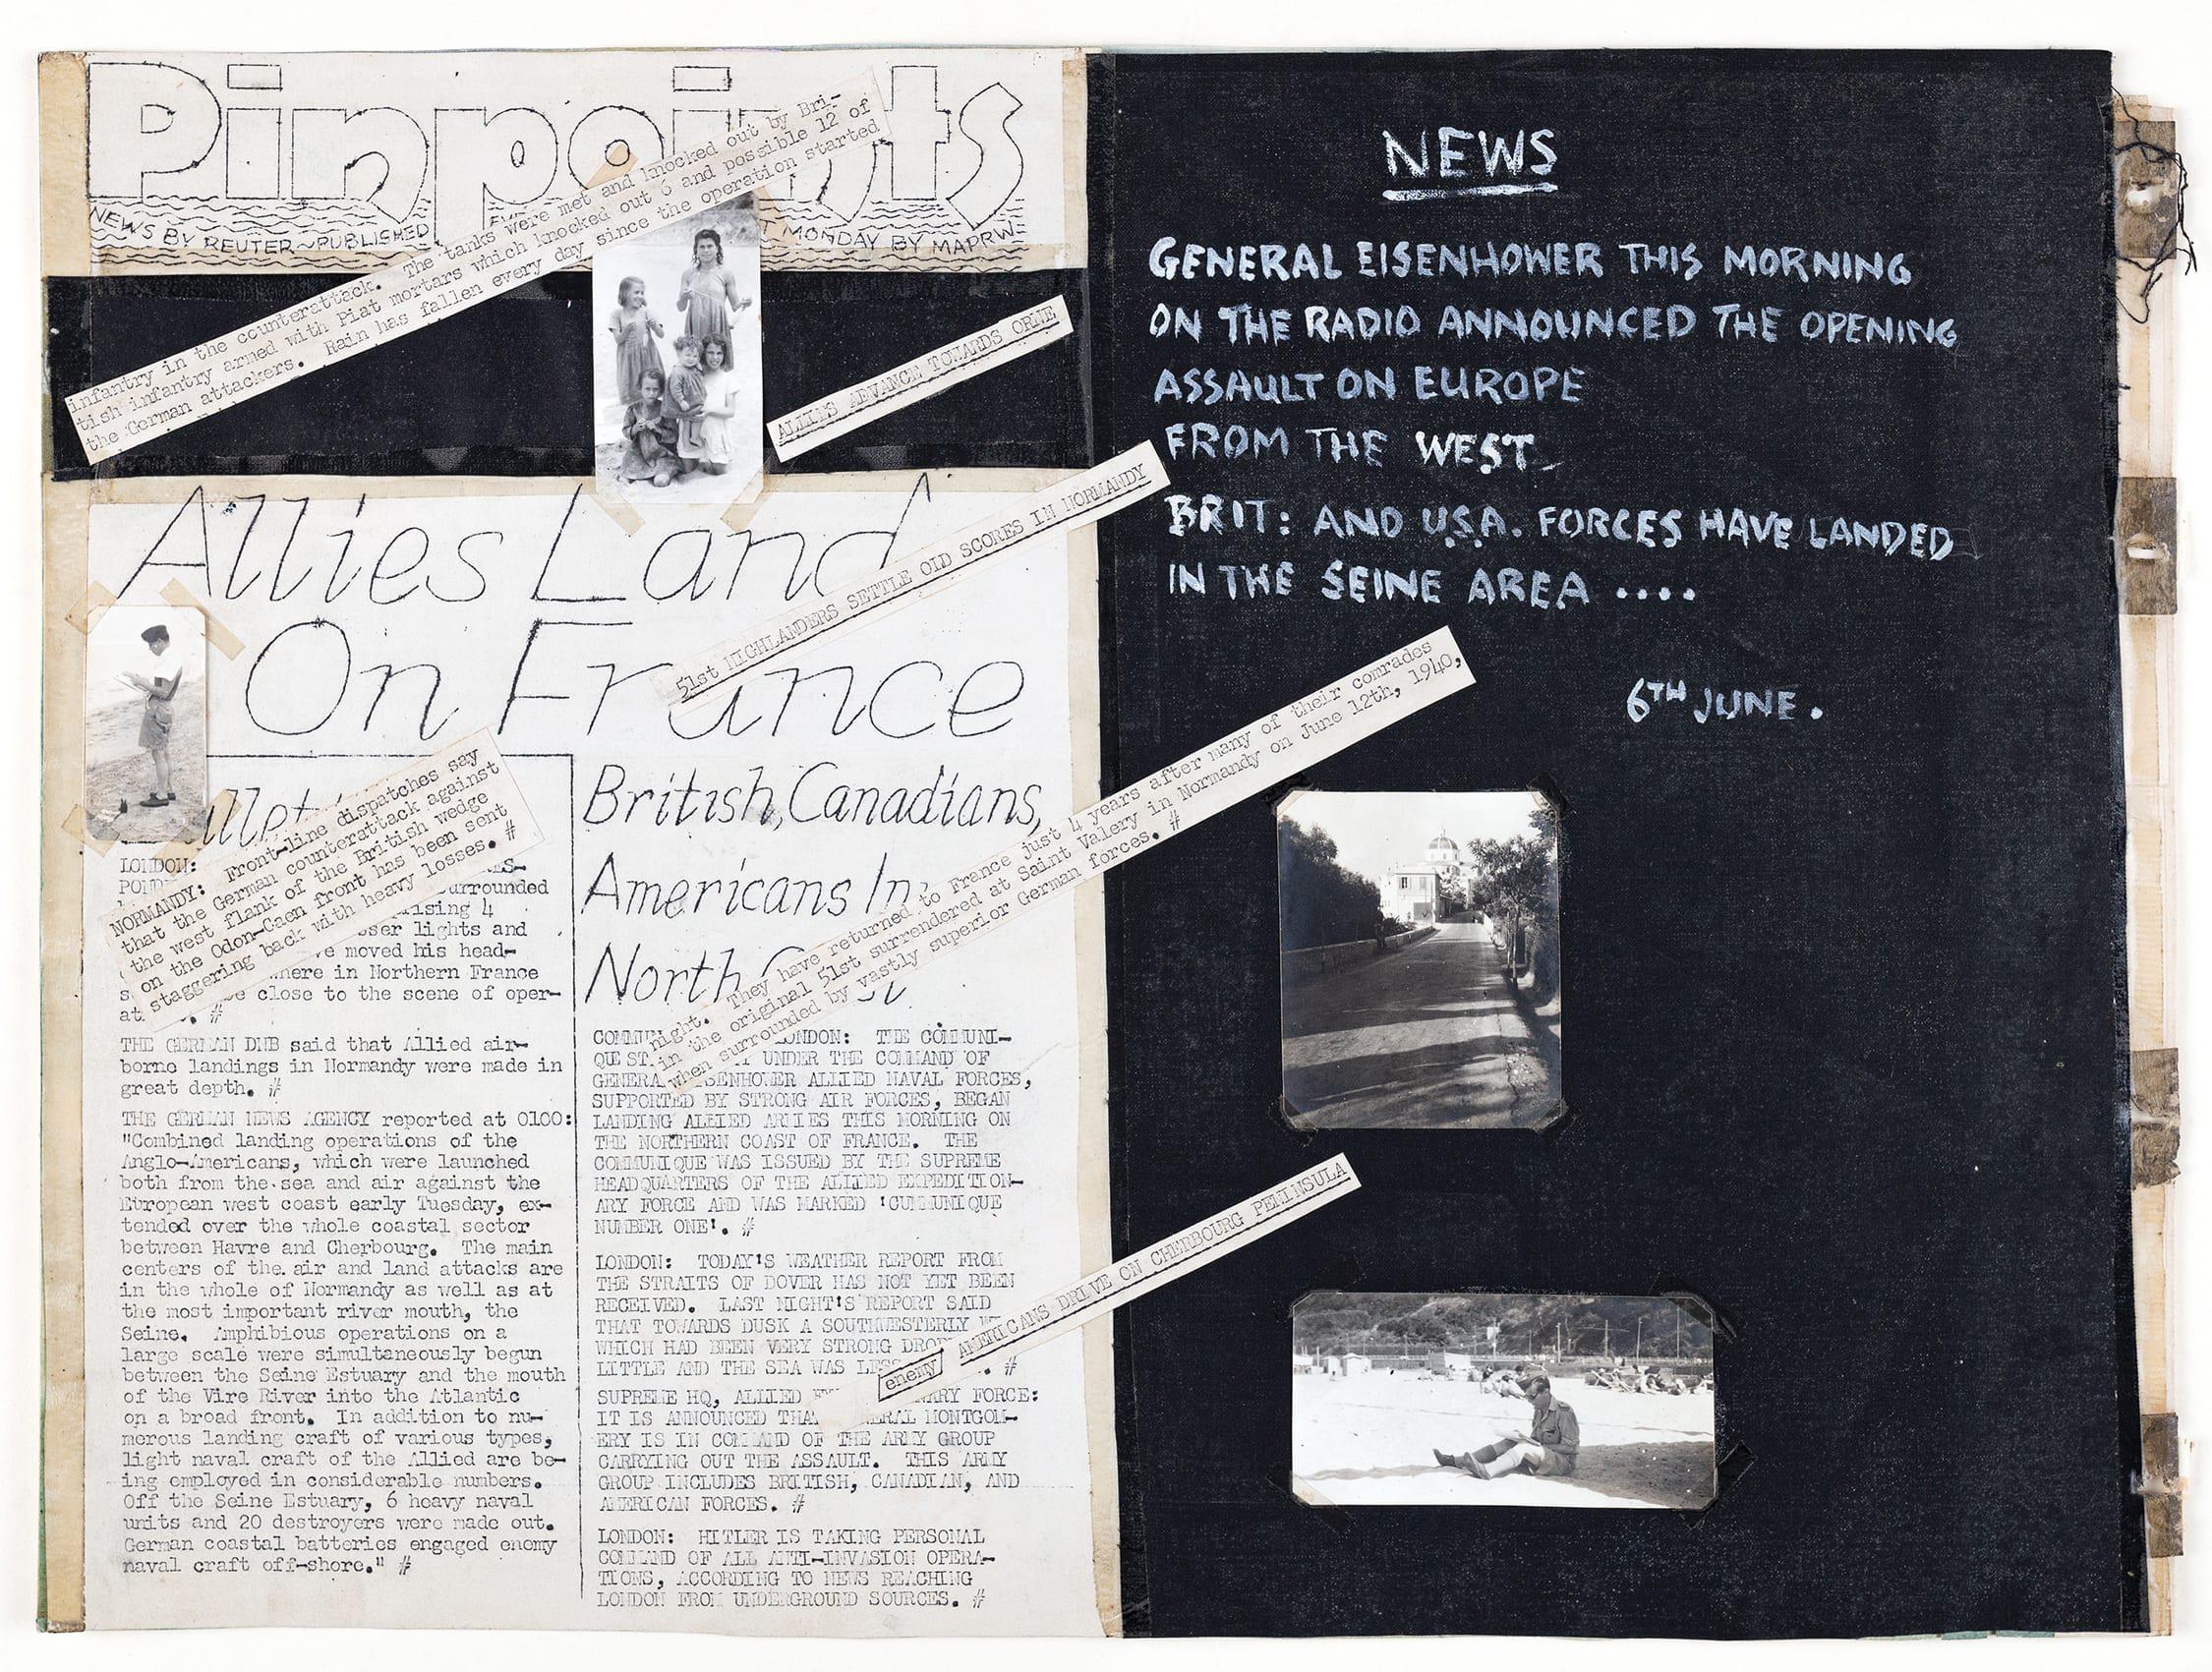 Pinpoints
NEWS BY REUTER - PUBLISHED
T MONDAY BY MAPRW=
infantry in the counterattack. The tanks were met and knocked out by Bri-
tish infantry armed with Piat mortars which knocked out 6 and possible 12 of
the German attackers. Rain has fallen every day since the operation started
ALLIES ADVANCE TOWARDS ORNE
Allies Land
On France
51st HIGHLANDERS SETTLE OLD SCORES IN NORMANDY
NORMANDY: Front-line dispatches say
that the German counterattack against
the west flank of the British wedge
on the Odon-Caen front has been sent
staggering back with heavy losses. #
LONDON:
urrounded
rising 4
sser lights and
ve moved his head-
here in Northern France
close to the scene of oper-
at #
THE GERMAN DNB said that Allied air-
borne landings in Normandy were made in
great depth. #
THE GERMAN NEWS AGENCY reported at 0100:
"Combined landing operations of the
Anglo-Americans, which were launched
both from the sea and air against the
European west coast early Tuesday, ex-
tended over the whole coastal sector
between Havre and Cherbourg. The main
centers of the air and land attacks are
in the whole of Normandy as well as at
the most important river mouth, the
Seine. Amphibious operations on a
large scale were simultaneously begun
between the Seine Estuary and the mouth
of the Vire River into the Atlantic
on a broad front. In addition to nu-
merous landing craft of various types,
light naval craft of the Allied are be-
ing employed in considerable numbers.
Off the Seine Estuary, 6 heavy naval
units and 20 destroyers were made out.
German coastal batteries engaged enemy
naval craft off-shore." #
British, Canadians,
Americans In
North
night. They have returned to France just 4 years after many of their comrades
in the original 51st surrendered at Saint Valery in Normandy on June 12th, 1940,
when surrounded by vastly superior German forces. #
LONDON: THE COMMUNI-
QUE UNDER THE COMMAND OF
GENERAL EISENHOWER ALLIED NAVAL FORCES,
SUPPORTED BY STRONG AIR FORCES, BEGAN
LANDING ALLIED ARMIES THIS MORNING ON
THE NORTHERN COAST OF FRANCE. THE
COMMUNIQUE WAS ISSUED BY THE SUPREME
HEADQUARTERS OF THE ALLIED EXPEDITION-
ARY FORCE AND WAS MARKED 'CUMMUNIQUE
NUMBER ONE'. #
LONDON: TODAY'S WEATHER REPORT FROM
THE STRAITS OF DOVER HAS NOT YET BEEN
RECEIVED. LAST NIGHT'S REPORT SAID
THAT TOWARDS DUSK A SOUTHWESTERLY
WHICH HAD BEEN VERY STRONG DRO
LITTLE AND THE SEA WAS LESS . #
enemy AMERICANS DRIVE ON CHERBOURG PENINSULA
SUPREME HQ, ALLIED ARY FORCE:
IT IS ANNOUNCED THAT GENERAL MONTGOM-
ERY IS IN COMMAND OF THE ARMY GROUP
CARRYING OUT THE ASSAULT. THIS ARMY
GROUP INCLUDES BRITISH, CANADIAN, AND
AMERICAN FORCES. #
LONDON: HITLER IS TAKING PERSONAL
COMMAND OF ALL ANTI-INVASION OPERA-
TIONS, ACCORDING TO NEWS REACHING
LONDON FROM UNDERGROUND SOURCES. #
NEWS
GENERAL EISENHOWER THIS MORNING
ON THE RADIO ANNOUNCED THE OPENING
ASSAULT ON EUROPE
FROM THE WEST.
BRIT: AND U.S.A. FORCES HAVE LANDED
IN THE SEINE AREA ....
6TH JUNE.